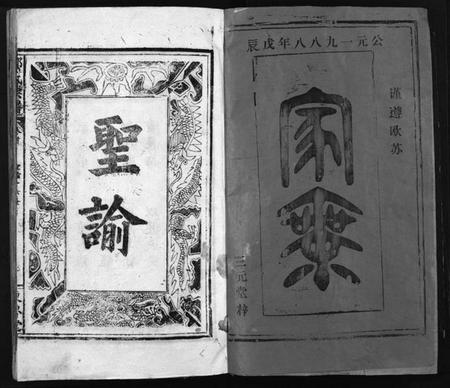 公元一九八八年戊辰
谨遵欧苏
家乘
三元堂梓
聖諭